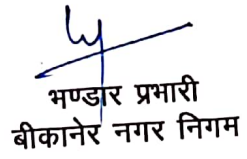 भण्डार प्रभारी
बीकानेर नगर निगम